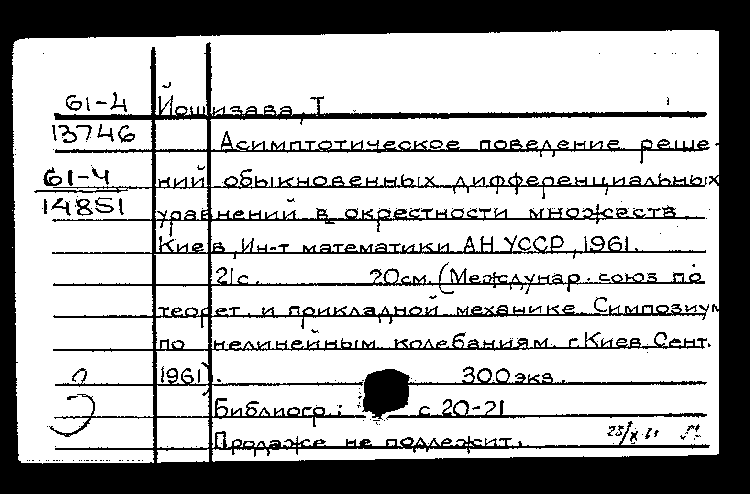 61-4 Йошизава, Т
13746 Асимптотическое поведение реше-
61-4 ний обыкновенных дифференциальных
14851 уравнений в окрестности множеств.
Киев, Ин-т математики АН УССР, 1961.
21с. 20см. (Междунар. союз по
теорет. и прикладной механике. Симпозиум
по нелинейным колебаниям. г.Киев. Сент.
1961). 300 экз.
Библиогр.: с 20-21
Продаже не подлежит.